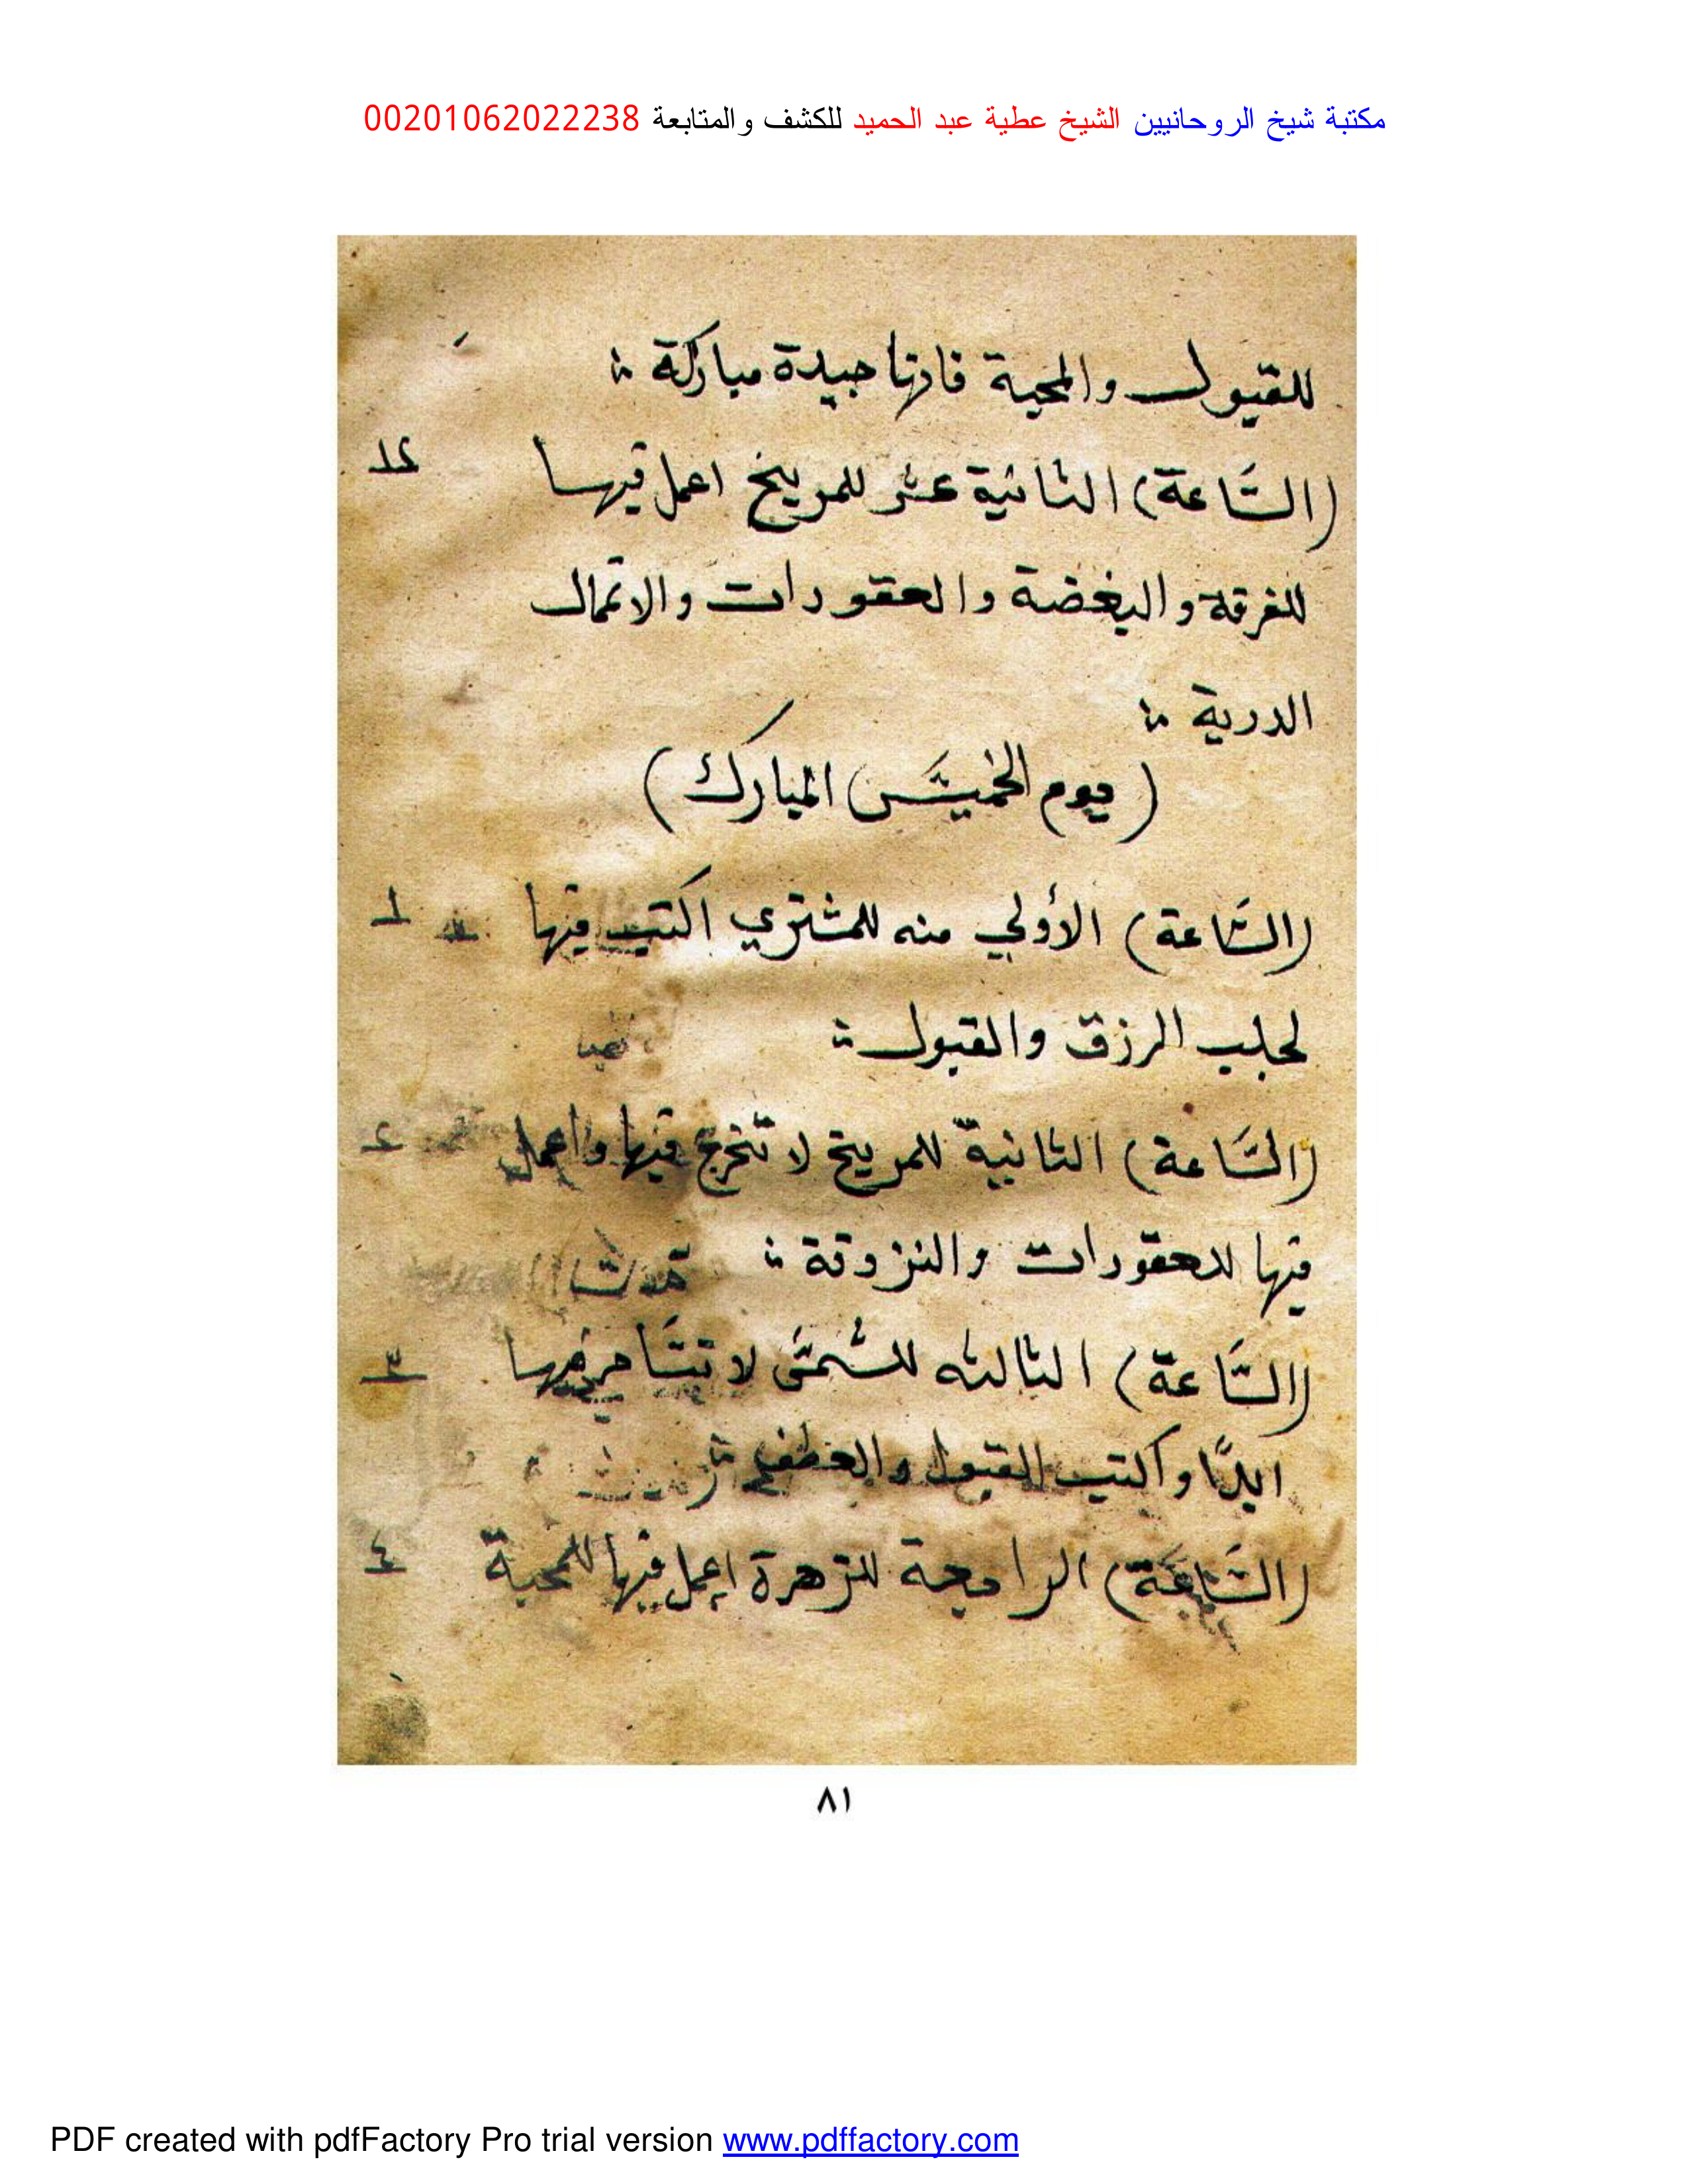 مكتبة شيخ الروحانيين الشيخ عطية عبد الحميد للكشف والمتابعة 00201062022238
للقبول والمحبة فانها جيدة مباركة
(السَّاعة) الثانية عشر للمريخ اعمل فيها ١٢
للفرقة والبغضة والعقودات والاعمال
الدرية
(يوم الخميس المبارك)
(السَّاعة) الأولي منه للمشتري اكتب فيها ١
لجلب الرزق والقبول
(السَّاعة) الثانية للمريخ لا تخرج فيها واعمل ٢
فيها للعقودات والنزوفة
(السَّاعة) الثالثه للشمس لا تسافر فيها ٣
ابدًا واكتب القبول والعطف
(السَّاعة) الرابعة للزهرة اعمل فيها للمحبة ٤
٨١
PDF created with pdfFactory Pro trial version www.pdffactory.com